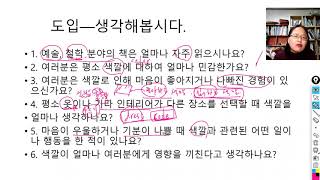 도입—생각해봅시다.
• 1. 예술, 철학 분야의 책은 얼마나 자주 읽으시나요?
• 2. 여러분은 평소 색깔에 대하여 얼마나 민감한가요?
• 3. 여러분은 색깔로 인해 마음이 좋아지거나 나빠진 경험이 있
으신가요?
• 4. 평소 옷이나 가라 인테리어가 다른 장소를 선택할 때 색깔을
얼마나 생각하나요?
• 5. 마음이 우울하거나 기분이 나쁠 때 색깔과 관련된 어떤 일이
나 행동을 한 적이 있나요?
• 6. 색깔이 얼마나 여러분에게 영향을 끼친다고 생각하나요?